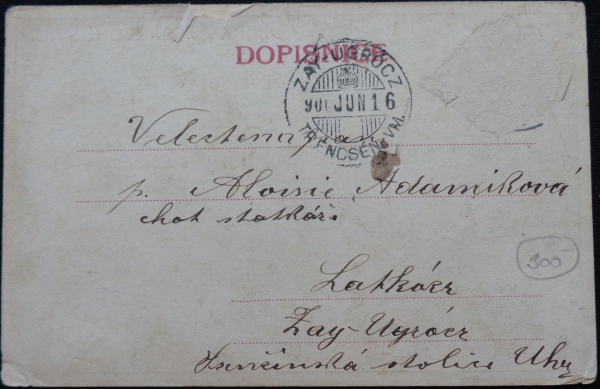 DOPISNICE
ZAY-UGRÓCZ
901 JUN 16
TRENCSÉN VM.
Velectená paní
p. Aloisie Adamiková
chot statkáře
300
Latkócz
Zay-Ugrócz
Trenčínská stolice Uhry